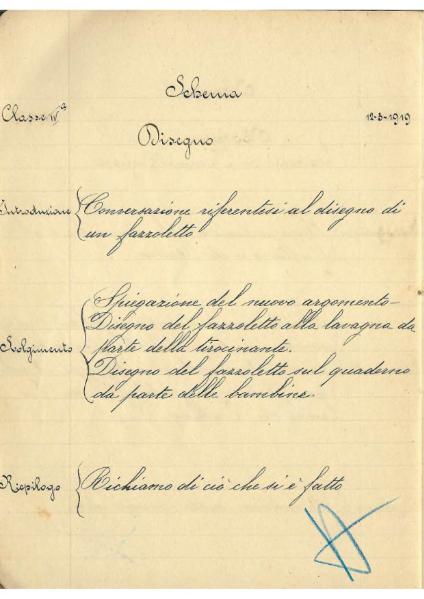 Schema
Classe IVª
12-3-1919
Disegno
Introduzione
Conversazione riferentesi al disegno di
un fazzoletto
Svolgimento
Spiegazione del nuovo argomento-
Disegno del fazzoletto alla lavagna da
parte della tirocinante.
Disegno del fazzoletto sul quaderno
da parte delle bambine.
Riepilogo
Richiamo di ciò che si è fatto